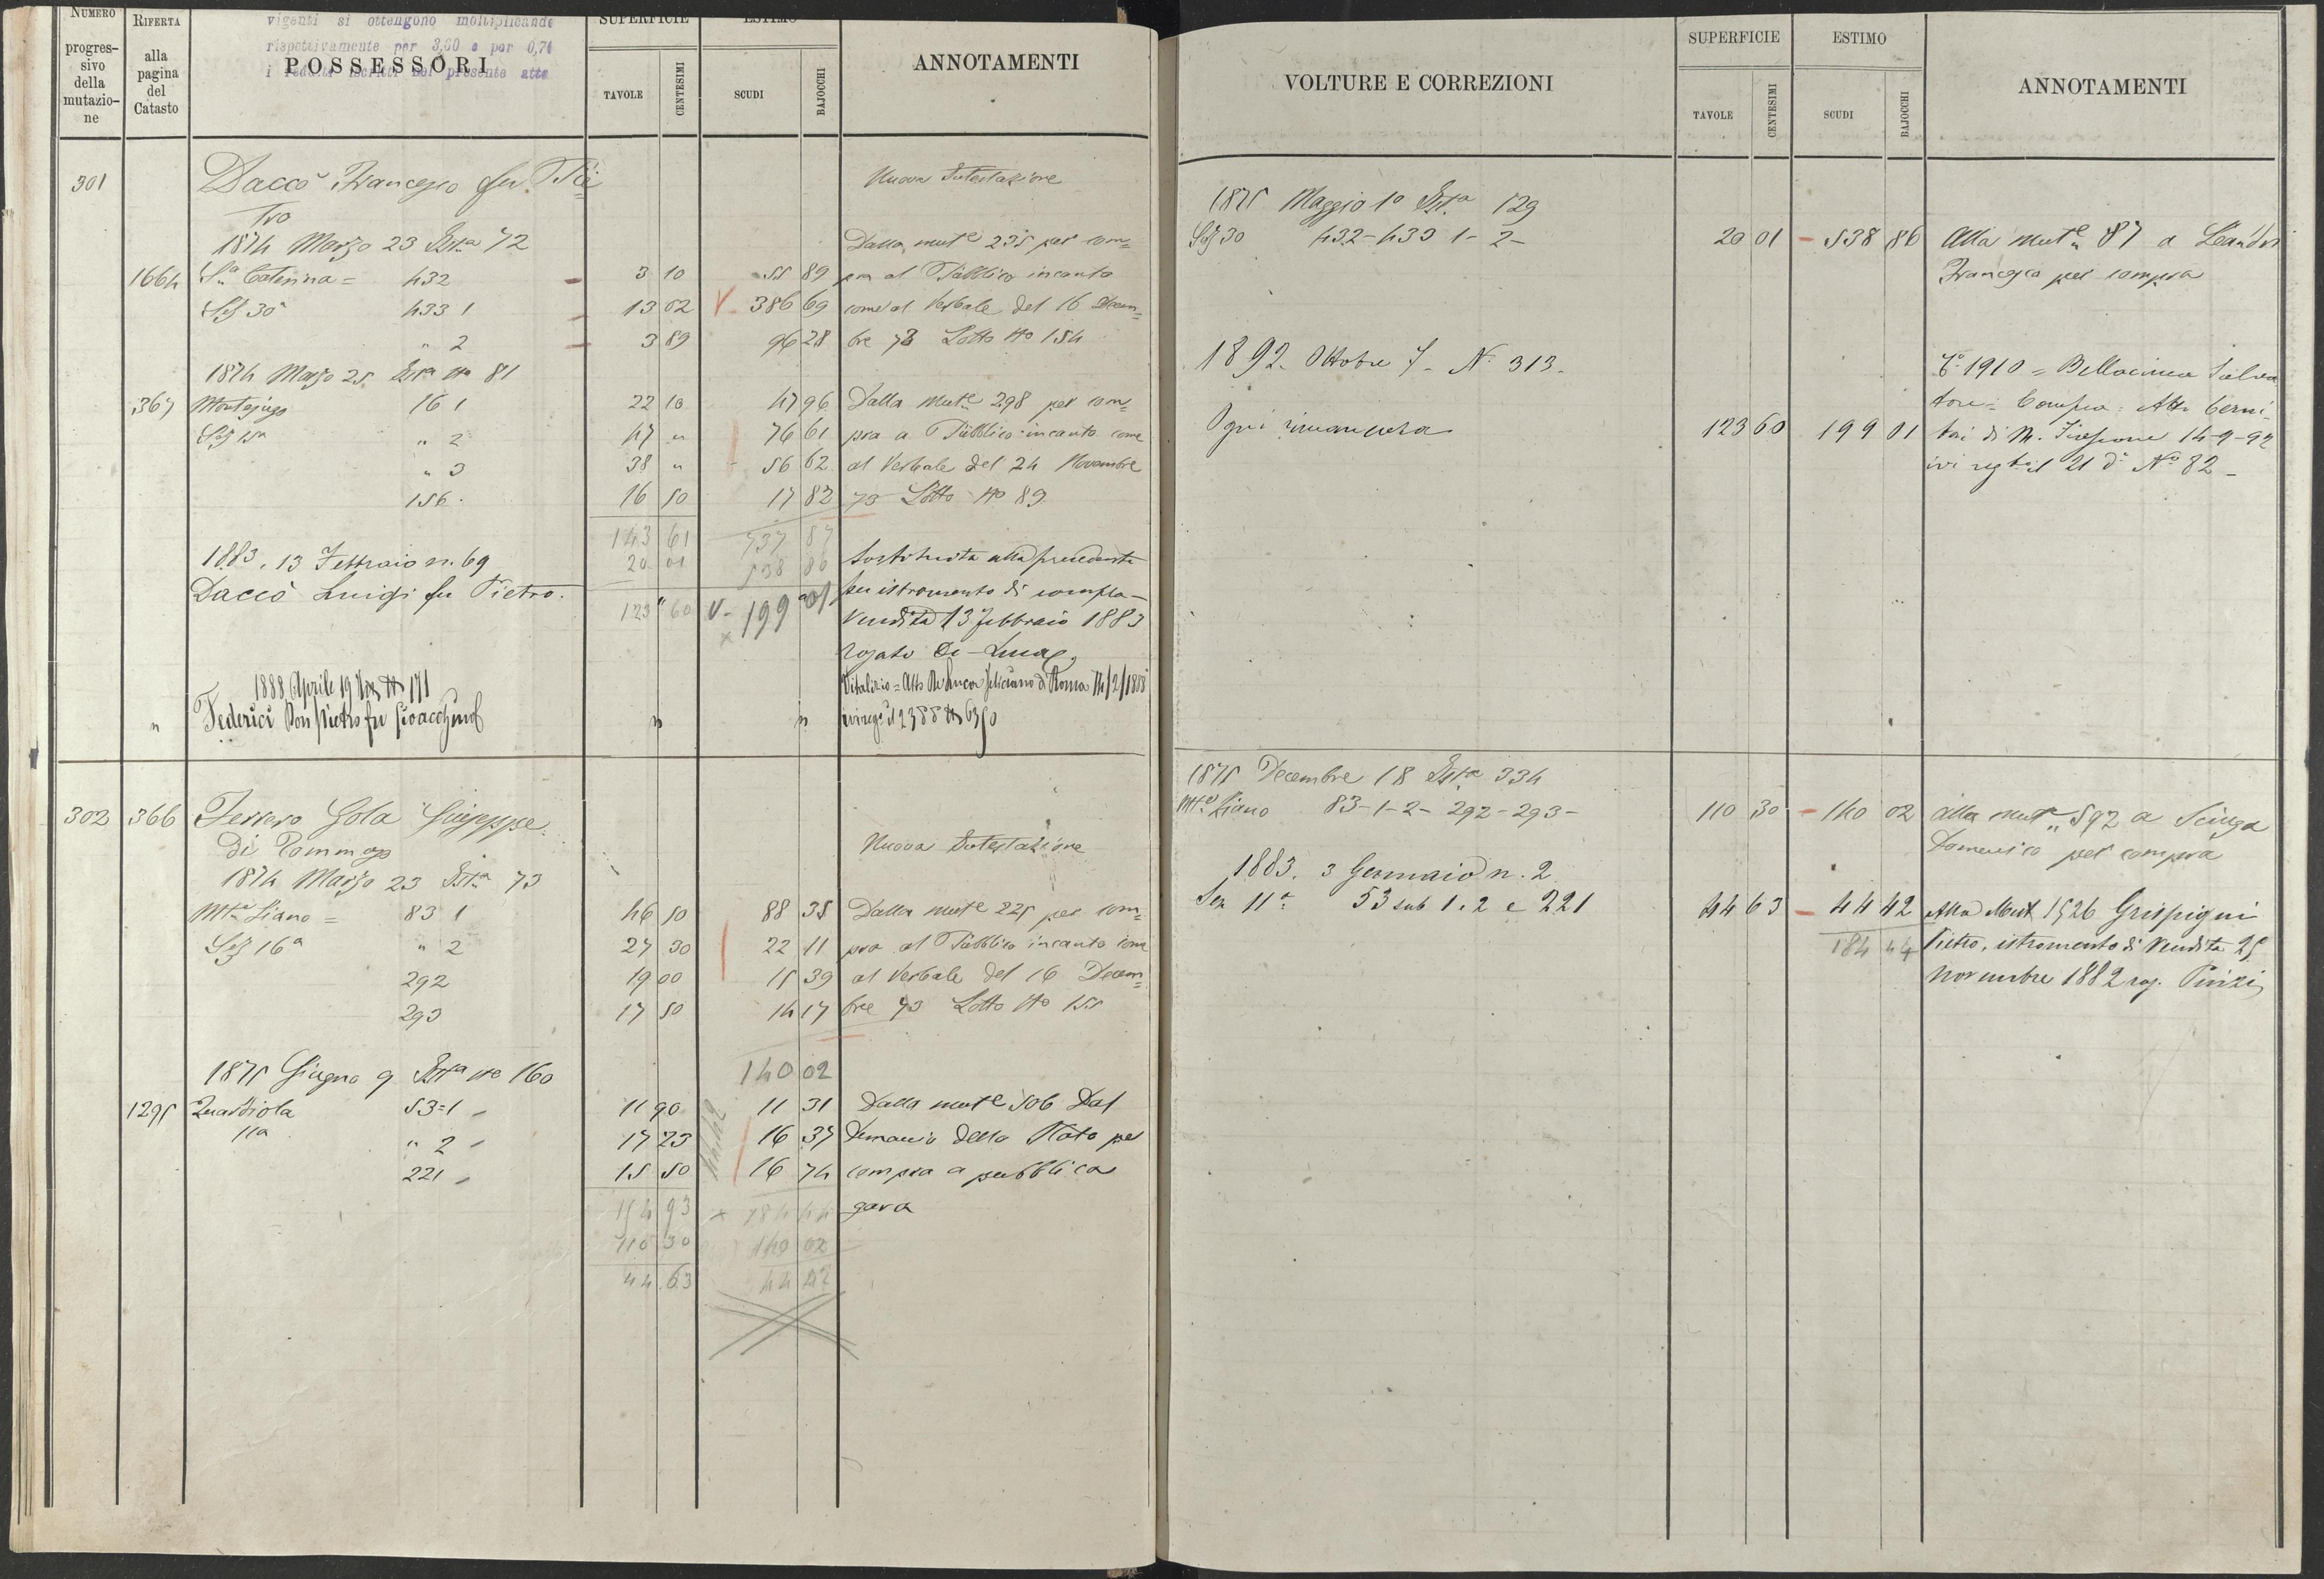 NUMERO progres- sivo della mutazio- ne
RIFERTA alla pagina del Catasto
vigenti si ottengono moltiplicando
rispettivamente per 3,60 e per 0,71
i redditi iscritti nel presente atto
POSSESSORI
SUPERFICIE
TAVOLE
CENTESIMI
ESTIMO
SCUDI
BAJOCCHI
ANNOTAMENTI
301 Daccò Francesco fu Pie= Nuova Intestazione
tro
1874 Marzo 23 Ista 72 Dalla mute 235 per com=
1664 Sa Caterina = 432 3 10 55 89 pra al Pubblico incanto
Sez 30a 433 1 13 02 V 386 69 come al Verbale del 16 Decem=
" 2 3 89 96 28 bre 73 Lotto No 154
1874 Marzo 25 Ista No 81
367 Montejugo 16 1 22 10 47 96 Dalla mute 298 per com=
Sez 15a " 2 47 " 76 61 pra a Pubblico incanto come
" 3 38 " 56 62 al Verbale del 24 Novembre
156 16 50 17 82 73 Lotto No 89
143 61 737 87
1883. 13 Febbraio n. 69 20 01 538 86 Sostituita alla precedente
Daccò Luigi fu Pietro. 123 60 V 199 01 per istromento di compra-
Vendita 13 febbraio 1883
rogato De-Luca
1888 Aprile 19 No 171 Vitalizio = Atto De Luca Feliciano di Roma 14/2/1888
" Federici Don Pietro fu Gioacchino " " ivi rego il 2 3 88 No 6350
302 366 Ferrero Gola Giuseppe
di Tommaso Nuova Intestazione
1874 Marzo 23 Ista 73
Mte Liano = 83 1 46 50 88 35 Dalla mute 225 per com=
Sez 16a " 2 27 30 22 11 pra al Pubblico incanto come
292 19 00 15 39 al Verbale del 16 Decem=
293 17 50 14 17 bre 73 Lotto No 155
140 02
1875 Giugno 9 Ista No 160
1295 Quartiola 53=1 11 90 11 31 Dalla mute 506 Dal
11a " 2 17 23 16 37 Demanio dello Stato per
221 15 50 16 74 compra a pubblica
154 93 × 184 44 gara
110 30 140 02
44 63 44 42
VOLTURE E CORREZIONI
SUPERFICIE
TAVOLE
CENTESIMI
ESTIMO
SCUDI
BAJOCCHI
ANNOTAMENTI
1875 Maggio 1o Ista 129
Sez 30 432-433 1-2- 20 01 - 538 86 Alla mute 87 a Leandri
Francesco per compra
1892. Ottobre 7. N. 313. 1910 = Bellacima Salva
tore = Compra = Atto
Ogni rimanenza 123 60 199 01 di M. 14-9-92
ivi regto il 21 do No 82-
1875 Decembre 18 Ista 334
Mte Liano 83-1-2-292-293- 110 30 - 140 02 alla mut 592 a Sciuga
Domenico per compra
1883. 3 Gennaio n. 2
Sez 11a 53 sub 1. 2 e 221 44 63 - 44 42 Alla Mut 1526 Grispigni
184 44 Pietro, istromento di Vendita 25
Novembre 1882 rog. Pinzi